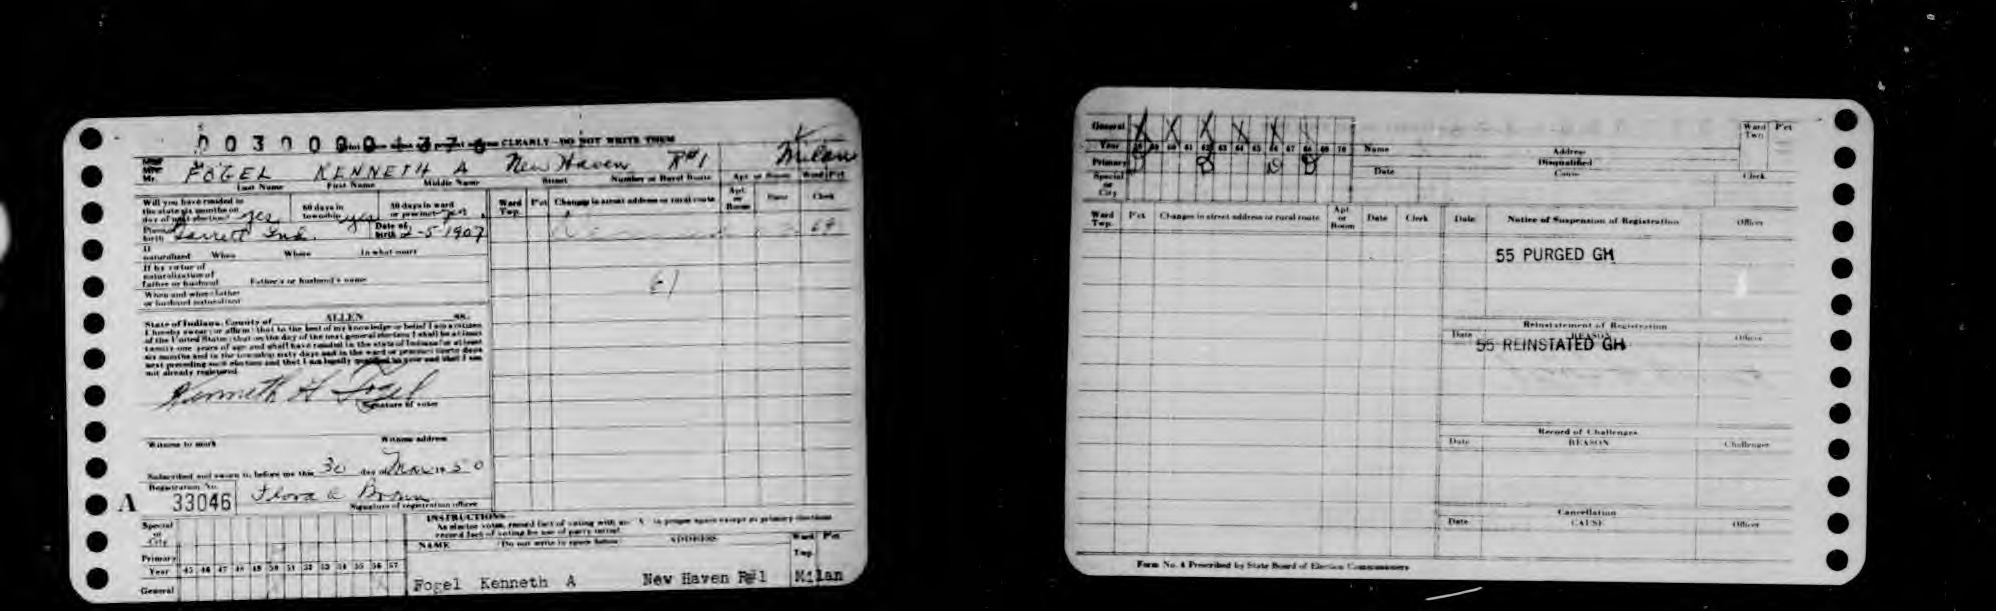 CLEARLY—DO NOT WRITE THEM
Mr. FOGEL KENNETH A New Haven R#1 Milan
Last Name First Name Middle Name Street Number or Rural Route Apt or Room Ward Pct
Will you have resided in
the state six months on
day of next election? yes
60 days in
township yes
30 days in ward
or precinct yes
Ward
Twp. P'ct Changes in street address or rural route Apt.
or
Room Date Clerk
birth Garrett Ind. Date of
birth 2-5-1907
69
If
naturalized When Where In what court
If by virtue of
naturalization of
father or husband Father's or husband's name
61
When and where father
or husband naturalized
State of Indiana, County of ALLEN ss.
I hereby swear or affirm that to the best of my knowledge or belief I am a citizen
of the United States; that on the day of the next general election I shall be at least
twenty-one years of age and shall have resided in the state of Indiana for at least
six months and in the township sixty days and in the ward or precinct thirty days
next preceding such election and that I am legally qualified to vote and that I am
not already registered
Kenneth A Fogel
Signature of voter
Witness to mark Witness address
Subscribed and sworn to before me this 30 day of Mar 19 50
Registration No.
A 33046 Flora A Brown
Signature of registration officer
INSTRUCTIONS
As elector votes, record fact of voting with an X in proper space except at primary elections
record fact of voting by use of party initial
Special
or
City
NAME (Do not write in space below) ADDRESS Ward
Twp. P'ct
Primary
Year 45 46 47 48 49 50 51 52 53 54 55 56 57
General
Fogel Kenneth A New Haven R#1 Milan
General X X X X X
Year 58 59 60 61 62 63 64 65 66 67 68 69 70
Primary D D D D
Special
or
City
Name Address
Disqualified
Date Cause Clerk
Ward
Twp P'ct
Ward
Twp. P'ct Changes in street address or rural route Apt
or
Room Date Clerk
Date Notice of Suspension of Registration Officer
55 PURGED GH
Reinstatement of Registration
Date REASON Officer
55 REINSTATED GH
Record of Challenges
Date REASON Challenger
Cancellation
Date CAUSE Officer
Form No. 4 Prescribed by State Board of Election Commissioners